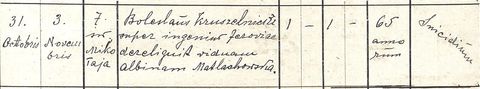 31.
Octobris
3.
Novem
bris
7.
św.
Miko
łaja
Boleslaus Kruszelnicki
super ingenier feroviae
dereliquit viduam
albinam Matlachowska.
1 - 1 -
65
anno
rum
Suicidium